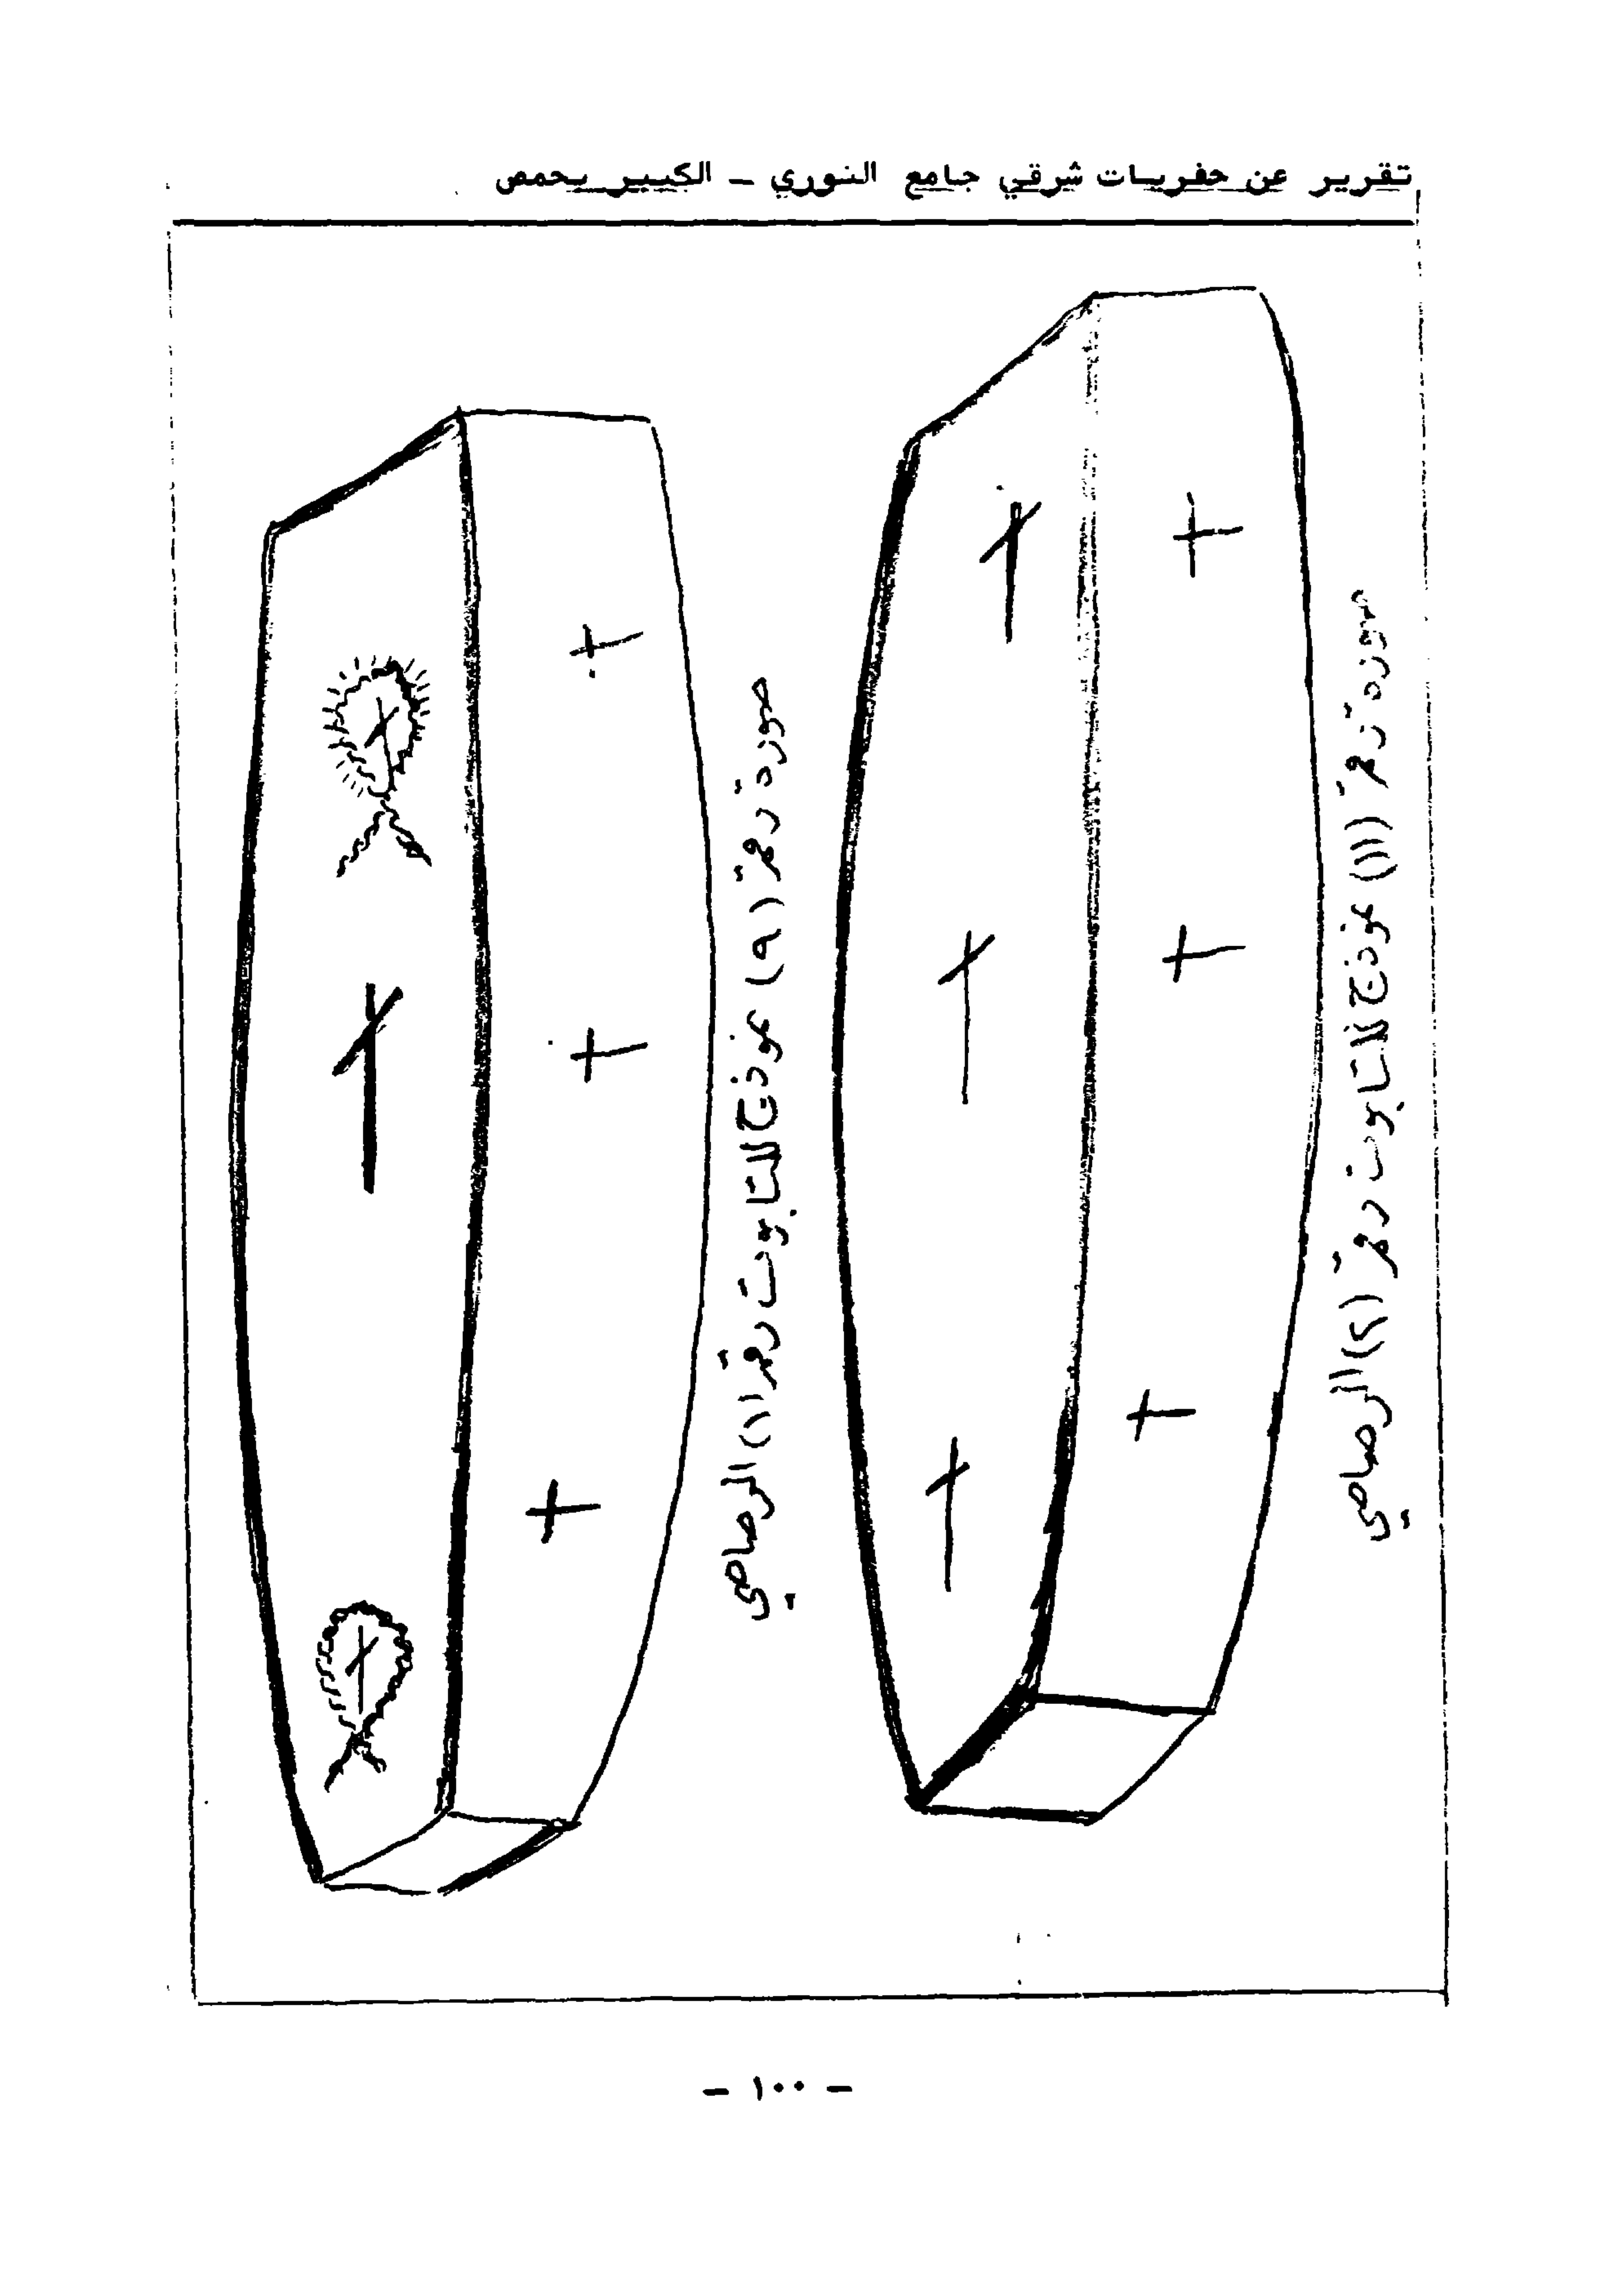 تقرير عن حفريات شرقي جامع النوري ــ الكبير بحمص
صورة رقم (١١) نموذج للتابوت رقم (٢) الرصاصي
صورة رقم (٩) نموذج للتابوت رقم (١) الرصاصي
ــ ١٠٠ ــ